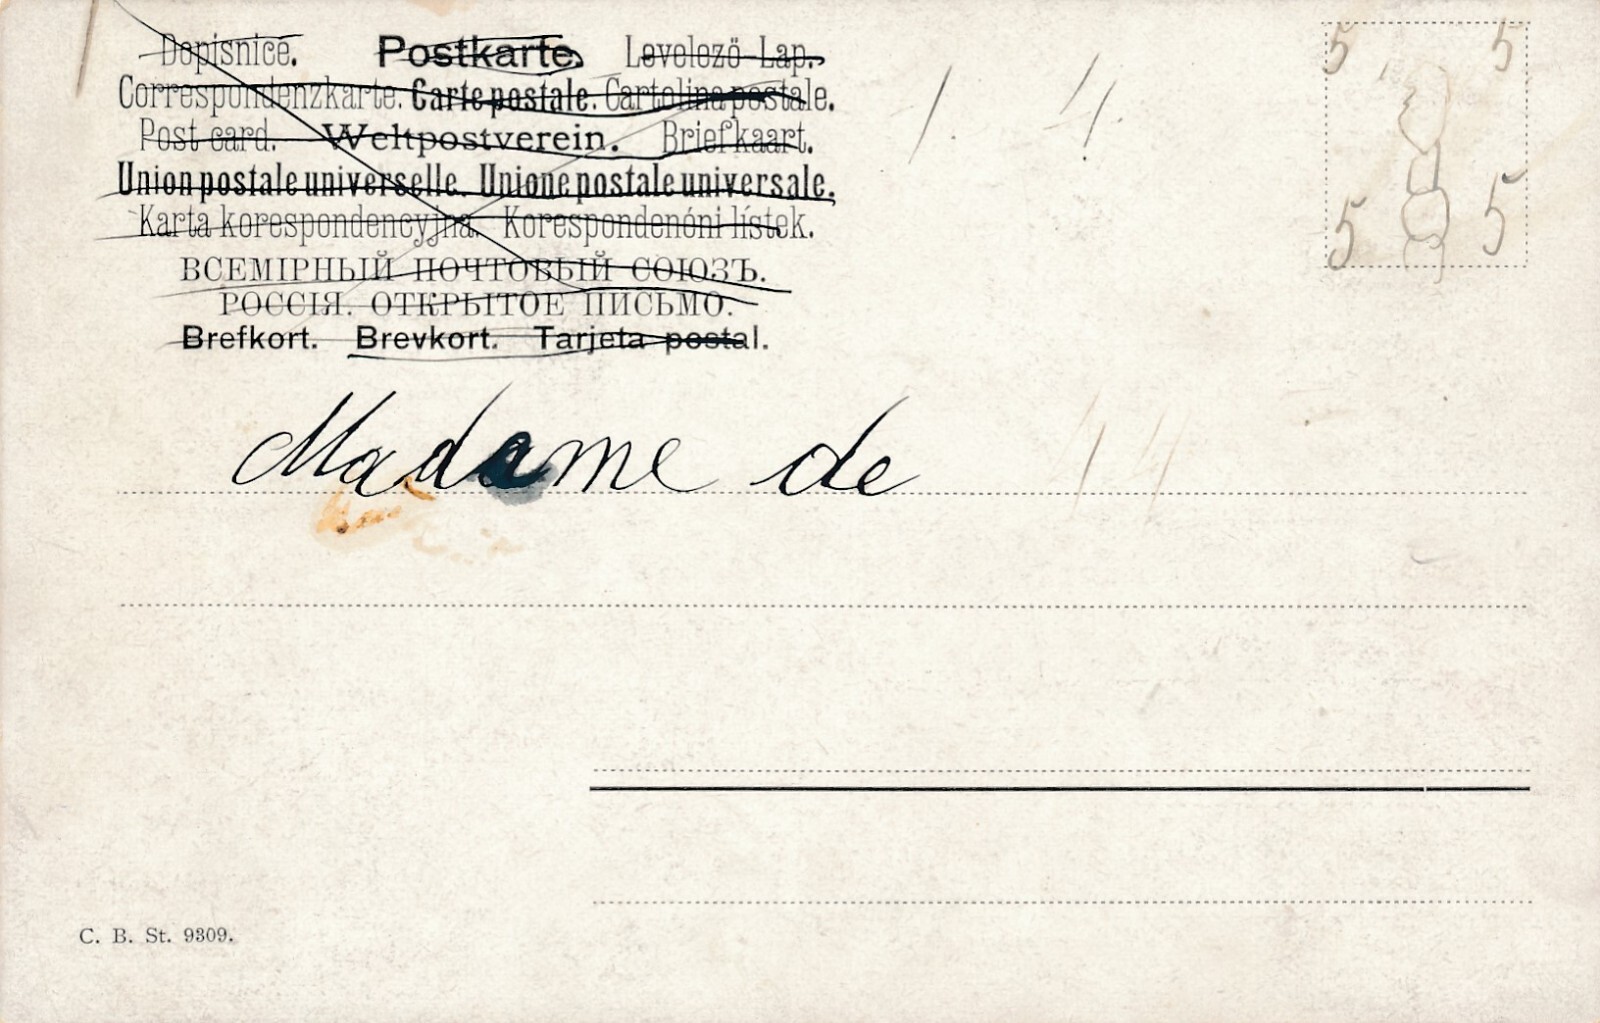 Dopisnice. Postkarte. Levelező-Lap.
Correspondenzkarte. Carte postale. Cartolina postale.
Post card. Weltpostverein. Briefkaart.
Union postale universelle. Unione postale universale.
Karta korespondencyjna. Korespondenóni lístek.
ВСЕМІРНЫЙ ПОЧТОВЫЙ СОЮЗЪ.
РОССІЯ. ОТКРЫТОЕ ПИСЬМО.
Brefkort. Brevkort. Tarjeta postal.
5 5
5 5
Madame de
C. B. St. 9309.